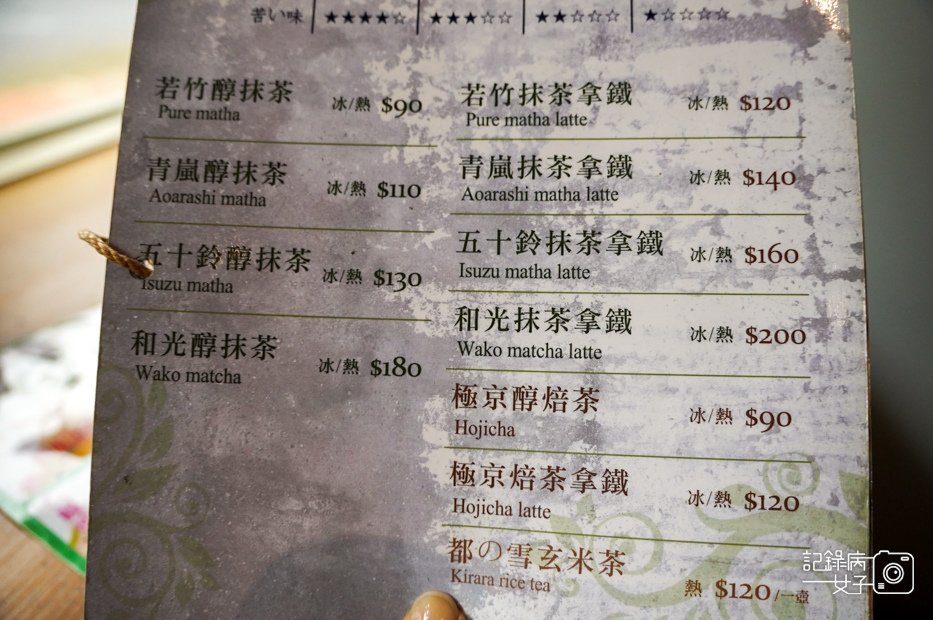 苦い味 ★★★★☆ ★★★☆☆ ★★☆☆☆ ★☆☆☆☆
若竹醇抹茶 冰/熱 $90
Pure matha
青嵐醇抹茶 冰/熱 $110
Aoarashi matha
五十鈴醇抹茶 冰/熱 $130
Isuzu matha
和光醇抹茶 冰/熱 $180
Wako matcha
若竹抹茶拿鐵 冰/熱 $120
Pure matha latte
青嵐抹茶拿鐵 冰/熱 $140
Aoarashi matha latte
五十鈴抹茶拿鐵 冰/熱 $160
Isuzu matha latte
和光抹茶拿鐵 冰/熱 $200
Wako matcha latte
極京醇焙茶 冰/熱 $90
Hojicha
極京焙茶拿鐵 冰/熱 $120
Hojicha latte
都の雪玄米茶
Kirara rice tea 熱 $120/一壺
記錄病
女子